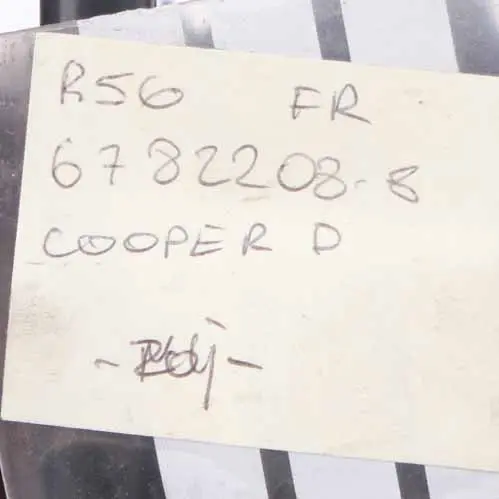 R56 FR
6782208-8
COOPER D